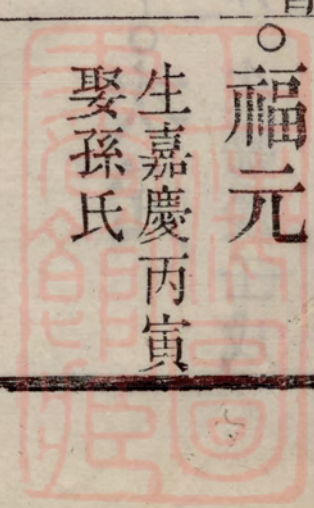 ○福元
生嘉慶丙寅
娶孫氏